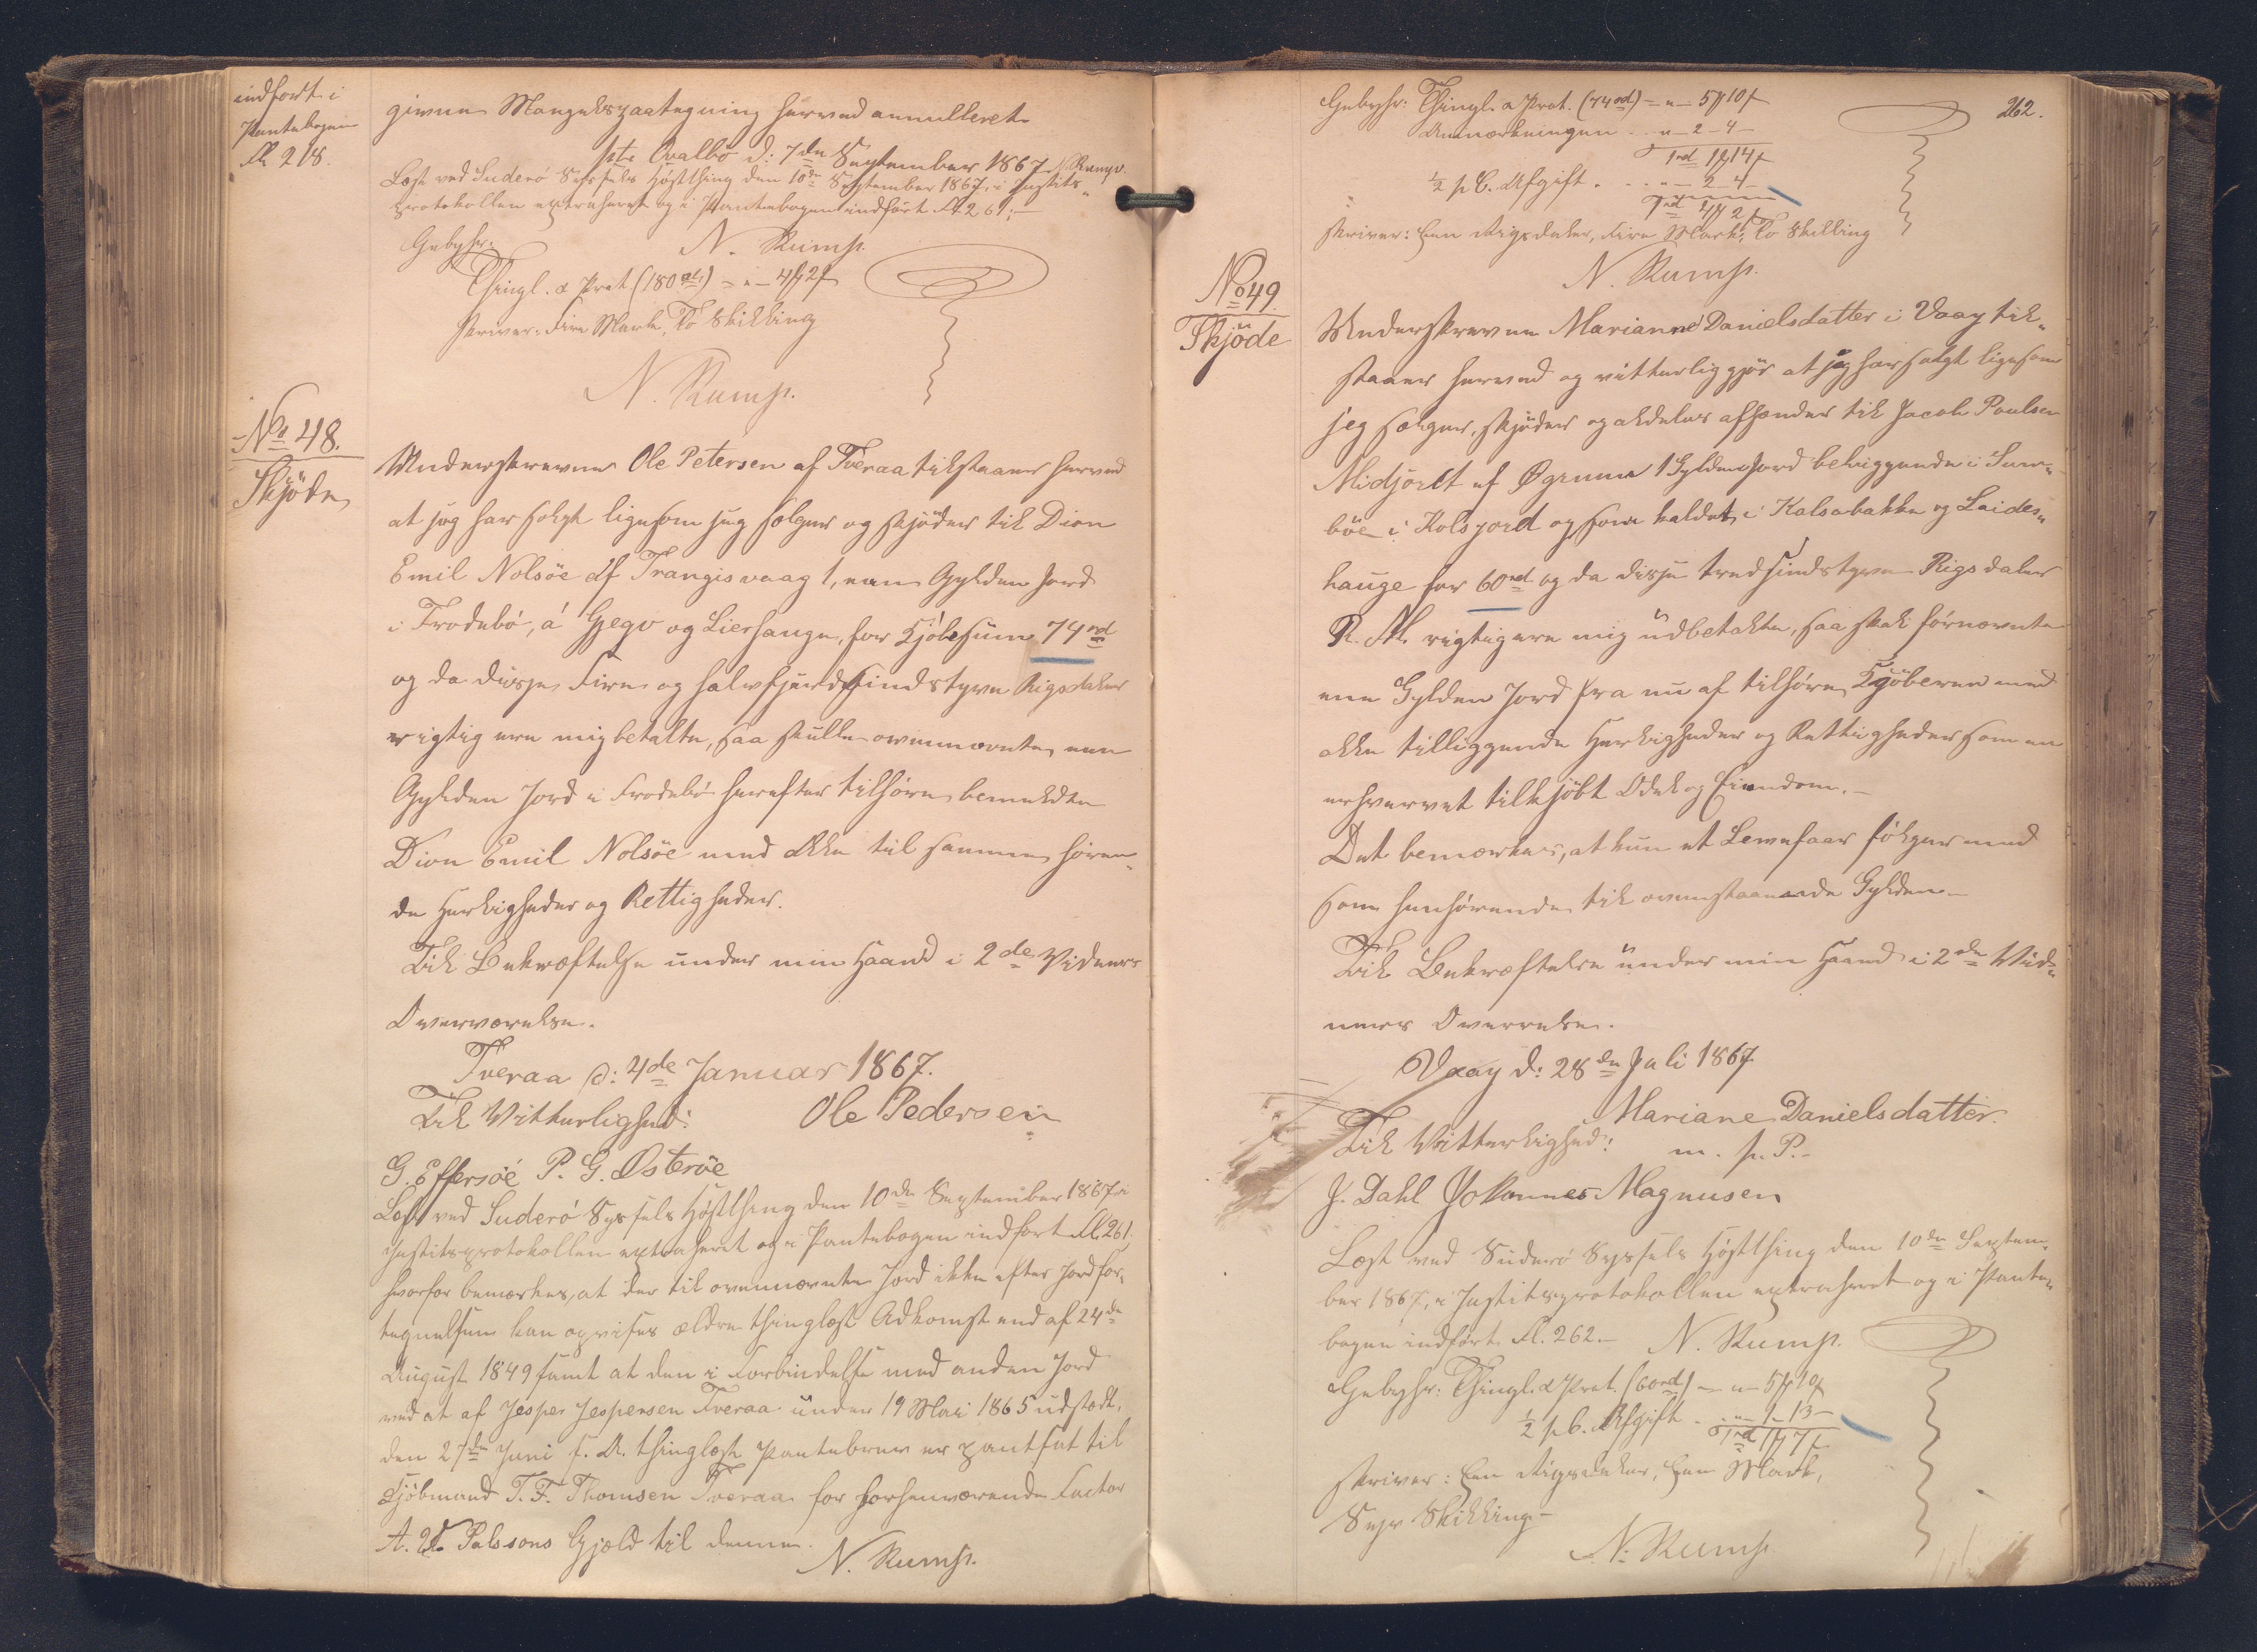 indført i
Pantebogen
fl 218.
givne Mangelspaategning herved annulleret.
pt. Qvalbø d: 7de September 1867 N Rump.
Læst ved Suderö Syssels Høstthing den 10de September 1867, i Justits„
protokollen extraheret og i Pantebogen indført fl 261.—
Gebyhr: N. Rump.
Thingl. & Prot (180 rd) = " — 4 ₥ 2 ſ
skriver: Fire Mark, To Skilling
N. Rump.
No 48.
Skjöde
Underskrevne Ole Petersen af Tveraa tilstaaer herved
at jeg har solgt ligesom jeg sælger og skjöder til Dion
Emil Nolsöe af Trangisvaag 1, een Gylden Jord
i Frodebö, á Gjegv og Lierhauge, for Kjöbesum 74 rd
og da disse Fire og halvfjerdsindstyve Rigsdaler
rigtig ere mig betalte, saa skulle ovennævnte een
Gylden Jord i Frodebö herefter tilhöre bemeldte
Dion Emil Nolsöe med alle til samme hören„
de Herligheder og Rettigheder.
Til Bekræftelse under min Haand i 2de Vidners
Overværelse.
Tveraa d: 4de Januar 1867.
Til Vitterlighed: Ole Pedersen
G. Effersöe P. G. Østeröe
Læst ved Suderö Syssels Høstthing den 10de September 1867, i
Justitsprotokollen extraheret og i Pantebogen indført fl 261,
hvorfor bemærkes, at der til ovennævnte Jord ikke efter Jordfor„
tegnelsen kan opvises ældre thinglæst Adkomst end af 24de
August 1849 samt at den i Forbindelse med anden Jord
ved et af Jesper Jespersen Tveraa under 19 Mai 1865 udstedt,
den 27de Juni s. A. thinglæst Pantebrev er pantsat til
Kjöbmand T. F. Thomsen Tveraa for forhenværende Factor
A. Palssons Gjæld til denne.
N. Rump.
262.
Gebyhr: Thingl. & Prot. (74 rd) = " — 5 ₥ 10 ſ
Anmærkningen .. " — 2 — 4 —
1 rd 1 ₥ 14 ſ
½ p C. Afgift . . . " — 2 — 4 —
1 rd 4 ₥ 2 ſ
skriver: Een Rigsdaler, Fire Mark, To Skilling
N. Rump.
No 49
Skjöde
Underskrevne Marianne Danielsdatter i Vaag til„
staaer herved og vitterliggjör at jeg har solgt ligesom
jeg sælger, skjöder og aldeles afhænder til Jacob Poulsen
Midjord af Øgrum 1 Gylden Jord beliggende i Sum„
böe i Kolsgord og som kaldet i Kalsabakke og Laides„
hauge for 60 rd og da disse tredsindstyve Rigsdaler
R. M. rigtig ere mig udbetalte, saa skal förnævnte
een Gylden Jord fra nu af tilhöre Kjöberen med
alle tilliggende Herligheder og Rettigheder som en
erhvervet tilkjöbt Odel og Eiendom.—
Det bemærkes, at kun et Lemefaar følger med
som henhörende til ovenstaaende Gylden—
Til Bekræftelse under min Haand i 2de Vid„
ners Overværelse.
Vaag d: 28de Juli 1867
Mariane Danielsdatter.
Til Vitterlighed: m. p. P.—
J. Dahl Johannes Magnusen
Læst ved Suderö Syssels Høstthing den 10de Septem„
ber 1867, i Justitsprotokollen extraheret og i Pante„
bogen indført fl. 262.— N. Rump.
Gebyhr: Thingl. & Prot. (60 rd) — " — 5 ₥ 10 ſ
½ p C. Afgift . . " — 1 — 13 —
1 rd 1 ₥ 7 ſ
skriver: Een Rigsdaler, Een Mark,
Syv Skilling—
N. Rump